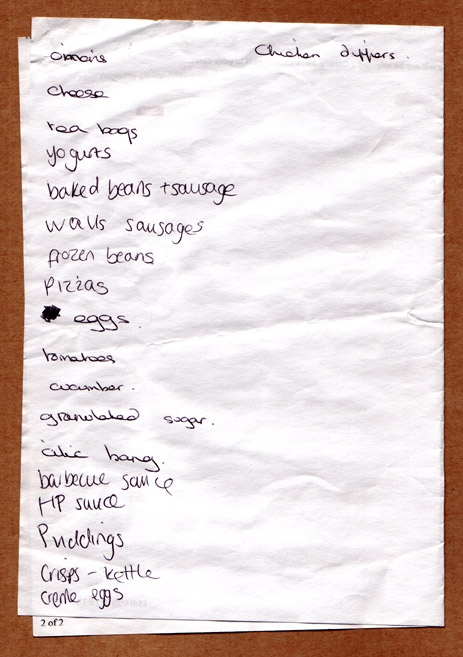 onions
Chicken dippers.
cheese
tea bags
yogurts
baked beans + sausage
walls sausages
frozen beans
Pizzas
eggs.
tomatoes
cucumber.
granulated sugar.
cilic bang.
barbecue sauce
HP sauce
Puddings
Crisps - kettle
creme eggs
2 of 2